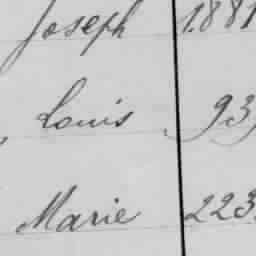 Joseph 1.881
Louis 93
Marie 223